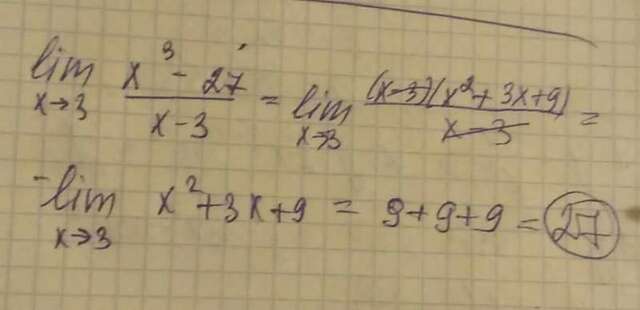 lim x→3 (x³ - 27)/(x-3) = lim x→3 ((x-3)(x²+3x+9))/(x-3) =
lim x→3 x²+3x+9 = 9+9+9 = 27